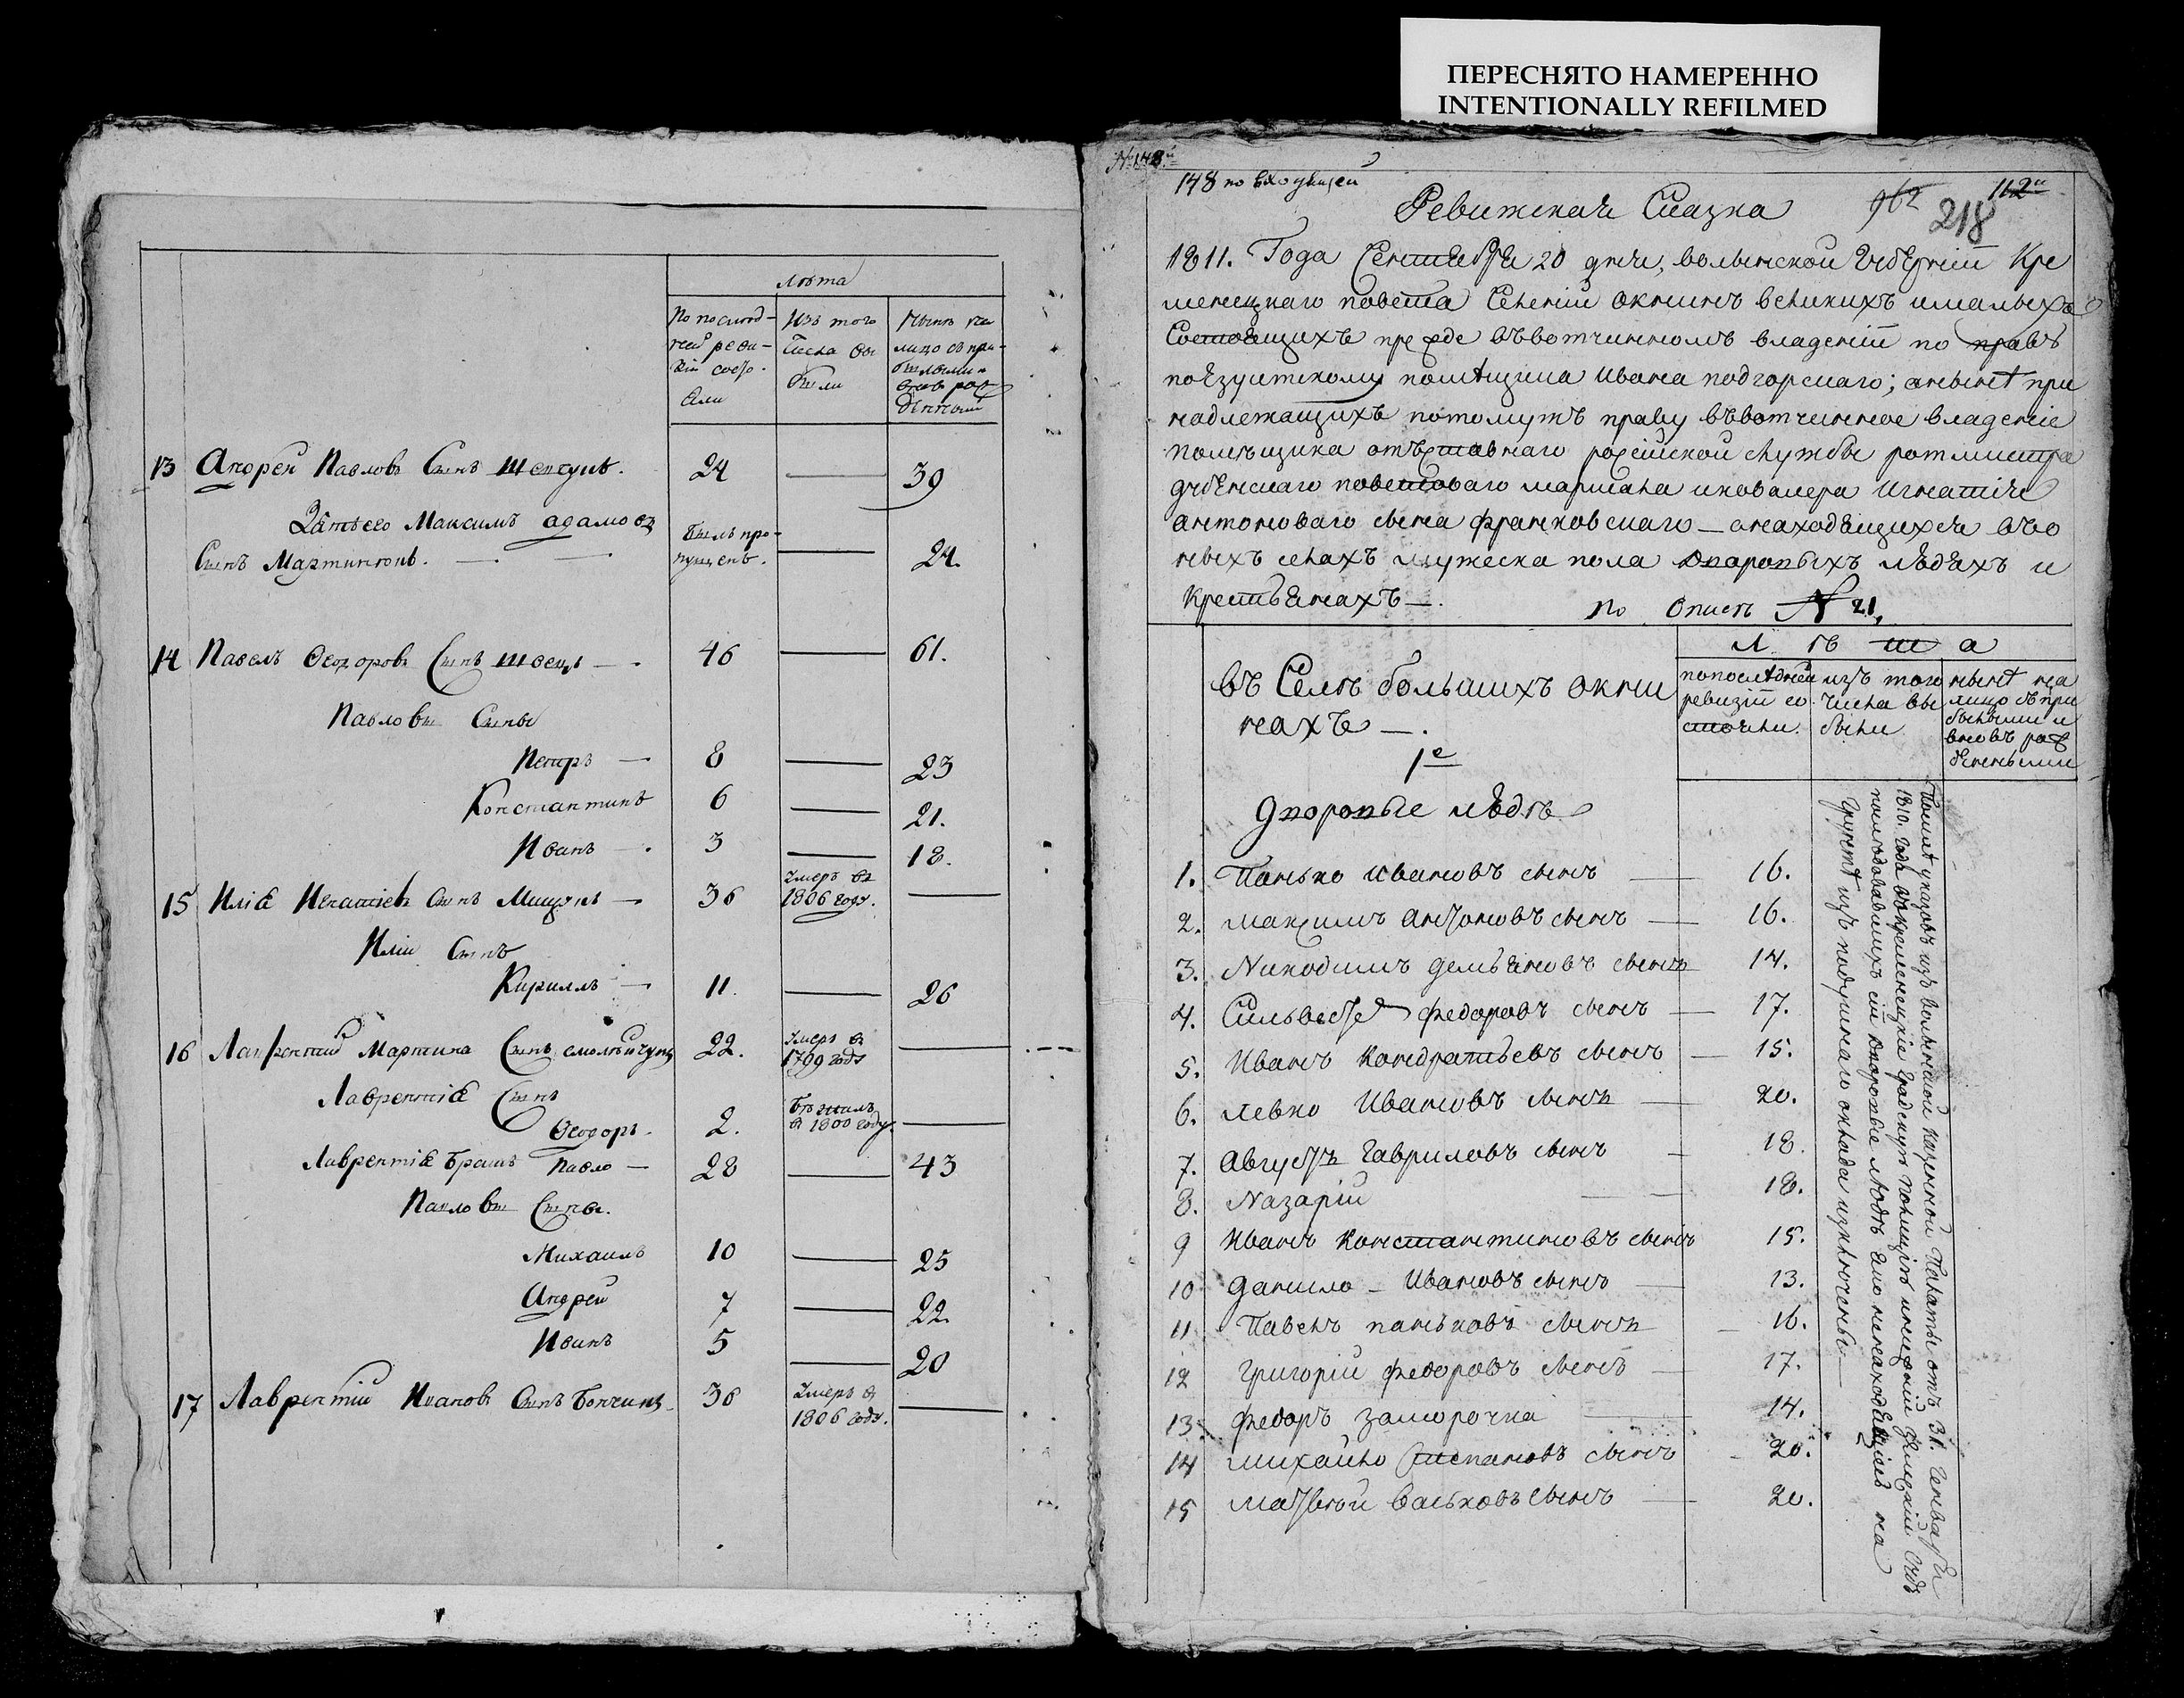 ПЕРЕСНЯТО НАМЕРЕННО
INTENTIONALLY REFILMED
Лѣта
По послѣд-
ней реви-
зіи состо-
яли
Изъ того
числа вы
были
Нынѣ на
лицо съ при-
былыми и
вновь рож
денными
13 Андрей Павловъ Сынъ 24 — 39
Зять его Максимъ Адамовъ
Сынъ Мартинюкъ. — Былъ про-
пущенъ. — 24.
14 Павелъ Ѳеодоровъ Сынъ Швецъ — 46 — 61.
Павловы Сыны
Петръ — 8 — 23
Константинъ 6 — 21.
Иванъ — 3 — 18.
15 Илія Игнатіевъ Сынъ Мищукъ — 36 Умеръ въ
1806 году. —
Иліи Сынъ
Кириллъ — 11. — 26
16 Лаврентій Мартина Сынъ 22. Умеръ въ
1799 году —
Лаврентія Сынъ
Ѳеодоръ 2. Бѣжалъ
въ 1800 году. —
Лаврентія братъ Павло — 28 — 43
Павловы Сыны.
Михаилъ 10 — 25
Андрей 7 — 22.
Иванъ 5 — 20
17 Лаврентій Ивановъ Сынъ 36 Умеръ въ
1806 году. —
№ 148й
148 по входящей
Ревижская Сказка 962 112й
218
1811. Года Сентября 20 дня, волынской Губерніи Кре
менецкаго повета Селеній окнинъ великихъ и малыхъ
Состоящихъ прежде въвотчинномъ владеніи по правѣ
поезуитскому помѣщика Ивана подгорскаго; анынѣ при
надлежащихъ потомужъ праву въвотчинное владеніе
помѣщика отъставнаго російской службы ротмистра
дубенскаго поветоваго маршала икавалера Игнатія
антоноваго сына франковскаго — онаходящихся въо
ныхъ селахъ мужеска пола дворовыхъ людяхъ и
крестьянахъ —. по описѣ № 21.
въ Селѣ большихъ окни
нахъ —.
1е
дворовые людѣ
Л ѣ т а
попослѣдней
ревизіи со
стояли.
изъ того
числа вы
были
нынѣ на
лицо съ при
былыми и
вновь рож
денными
1. Панько Ивановъ сынъ — 16.
2. Максимъ Антоновъ сынъ — 16.
3. Никодимъ демьяновъ сынъ 14.
4. Сильвестръ федоровъ сынъ — 17.
5. Иванъ Кондратьевъ сынъ — 15.
6. Левко Ивановъ сынъ — 20.
7. Августъ Гавриловъ сынъ — 18.
8. Назарій — 18.
9 Иванъ Константиновъ сынъ 15.
10 данило — Ивановъ сынъ — 13.
11 Павелъ паньковъ сынъ — 16.
12 Григорій федоровъ сынъ — 17.
13. федоръ заморочка — 14.
14 Михайло Степановъ сынъ — 20.
15 Матвѣй Васьковъ сынъ — 20.
Помимѣ указовъ изъ Волынской казенной Палаты отъ 31. Генваря
1810. года въ кременецкіе градскую полицію инижній земскій судъ
последовавшихъ сіи дворовые людѣ яко ненаходящіесь на
грунтѣ изъ подушнаго оклада изключены —